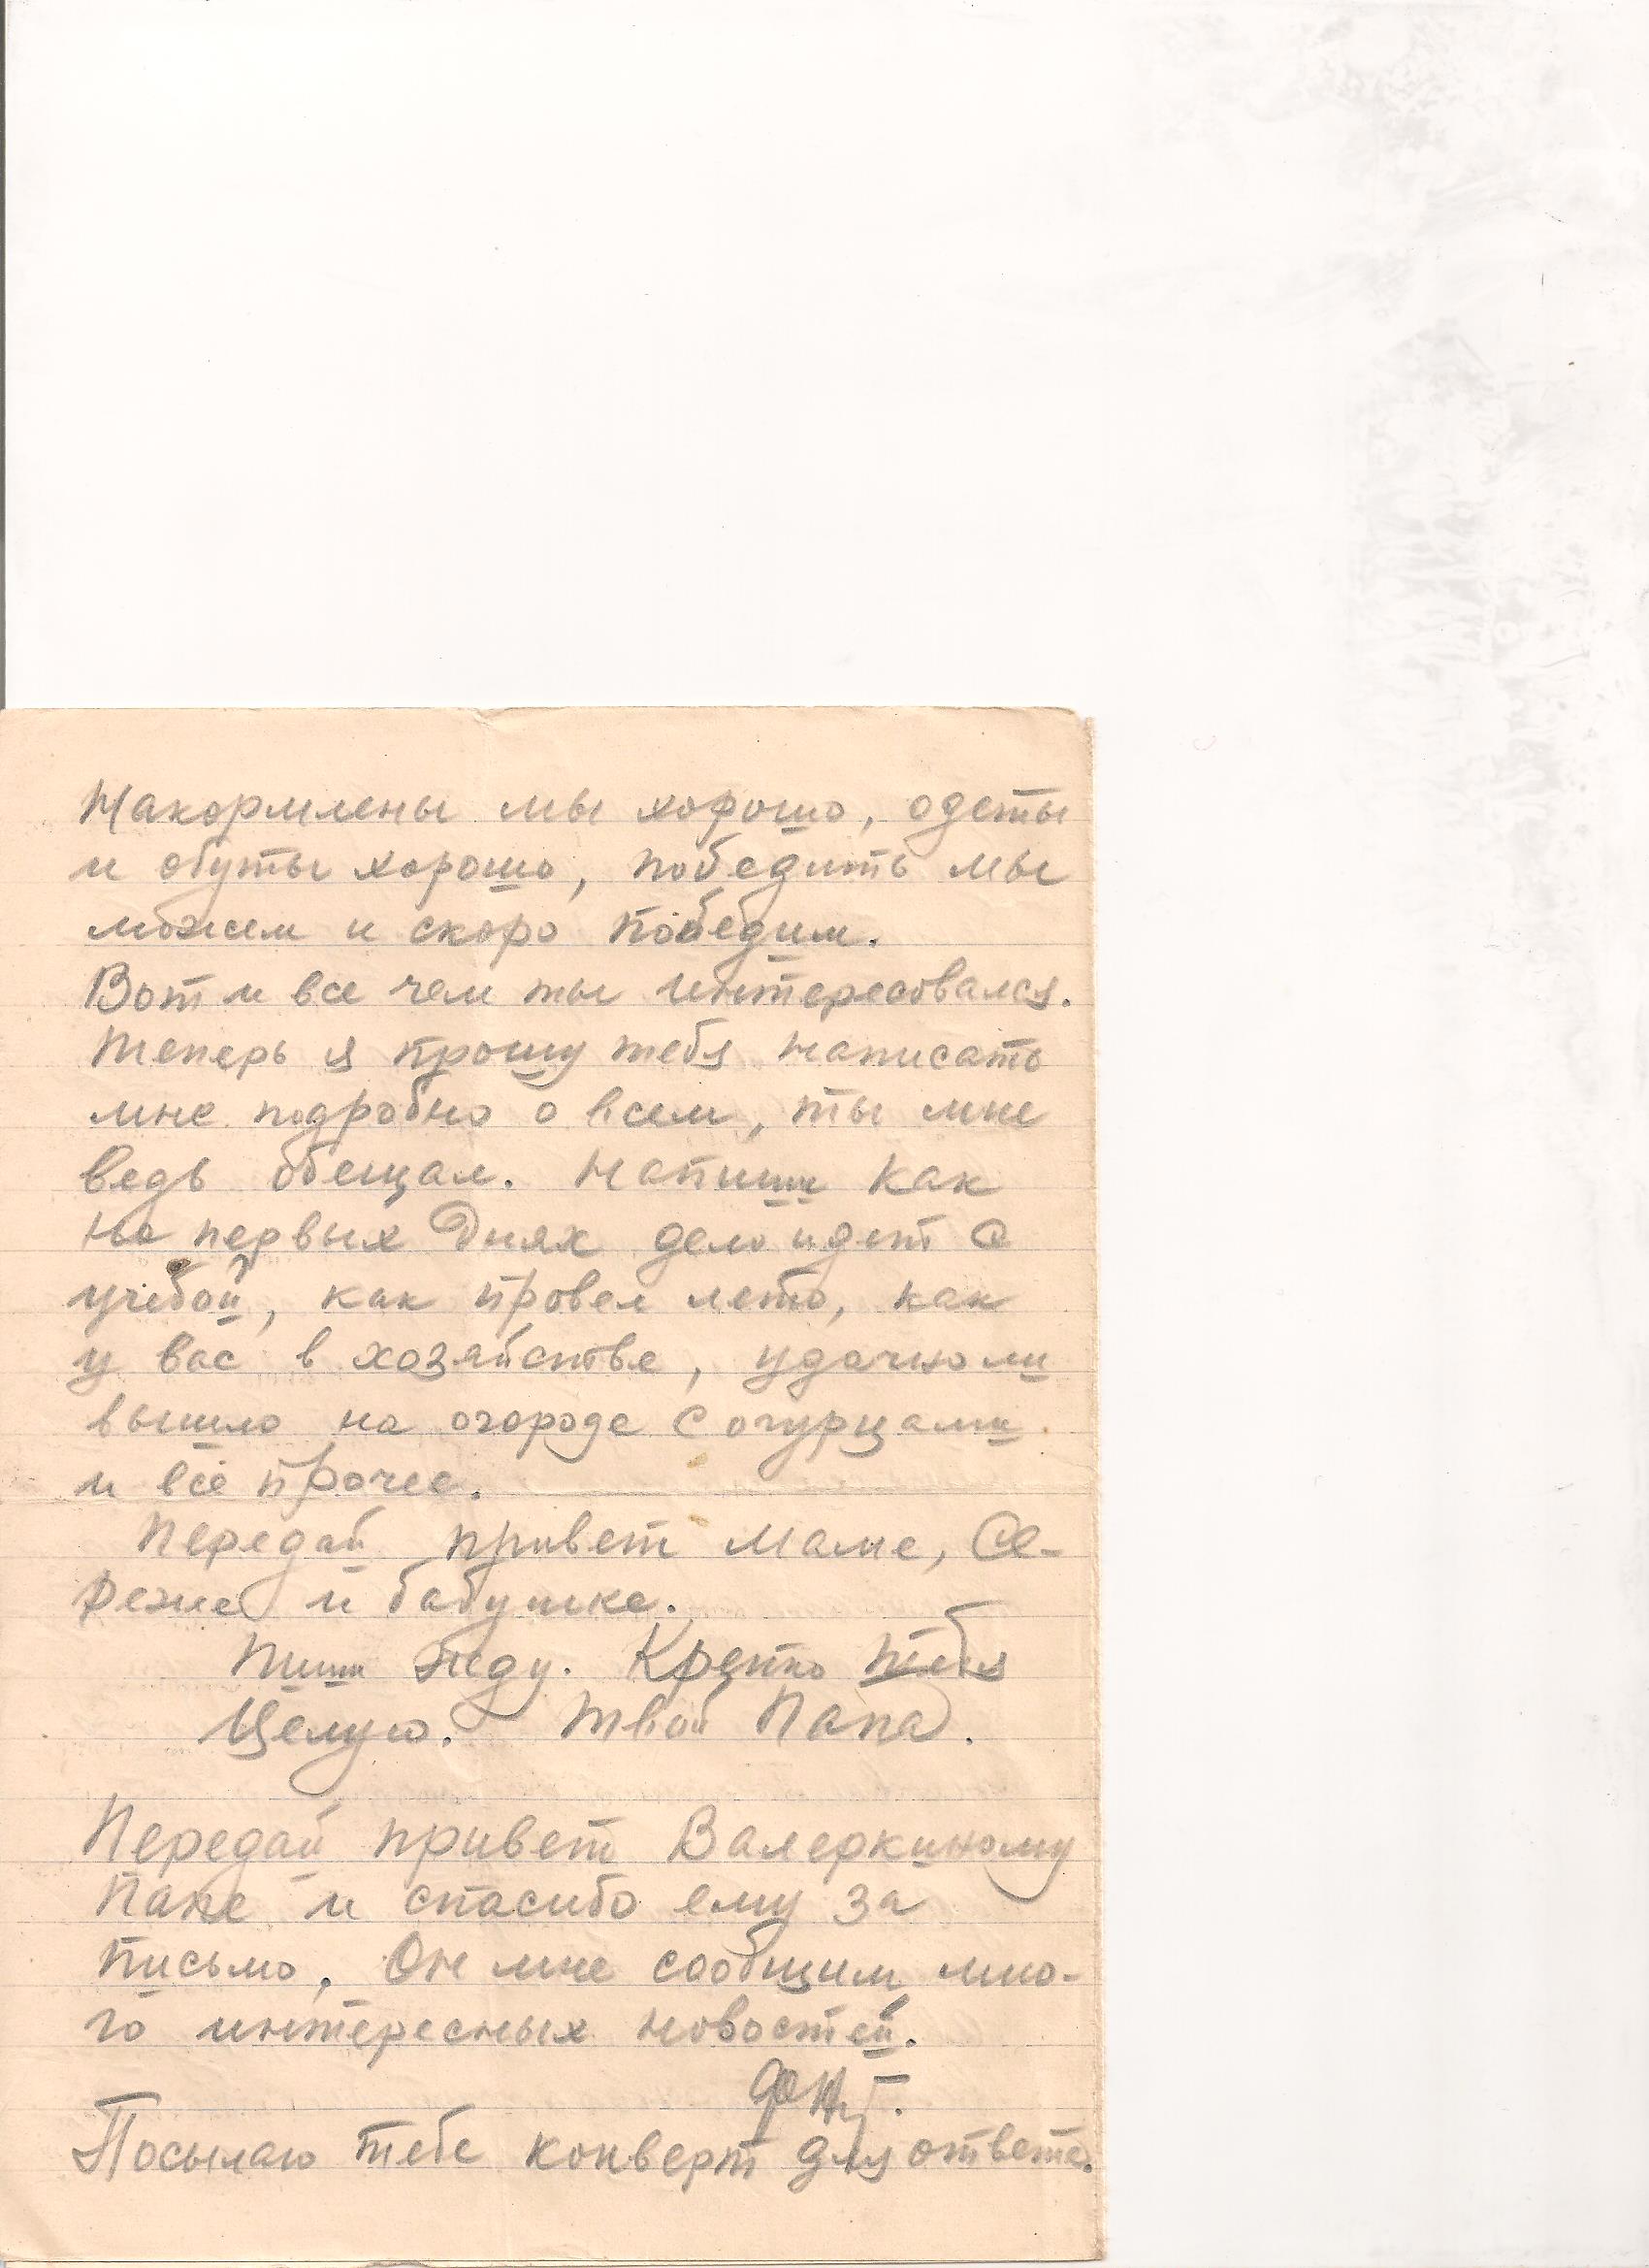 Накормлены мы хорошо, одеты
и обуты хорошо, победить мы
можем и скоро победим.
Вот и все чем ты интересовался.
Теперь я прошу тебя написать
мне подробно о всем, ты мне
ведь обещал. Напиши как
на первых днях дело идет с
учебой, как провел лето, как
у вас в хозяйстве, удачно ли
вышло на огороде с огурцами
и всё прочее.
Передай привет маме, Се-
реже и бабушке.
Пиши жду. Крепко тебя
Целую. Твой Папа.
Передай привет Валеркиному
Папе и спасибо ему за
письмо. Он мне сообщил мно-
го интересных новостей.
Посылаю тебе конверт для ответа.